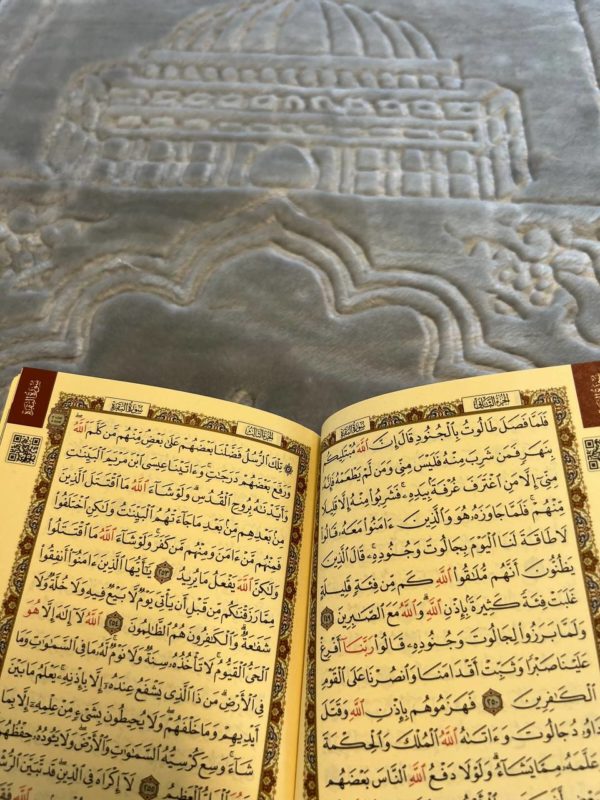 سورة البقرة
الجزء الثاني
فَلَمَّا فَصَلَ طَالُوتُ بِالْجُنُودِ قَالَ إِنَّ اللَّهَ مُبْتَلِيكُم
بِنَهَرٍ فَمَن شَرِبَ مِنْهُ فَلَيْسَ مِنِّي وَمَن لَّمْ يَطْعَمْهُ فَإِنَّهُ
مِنِّي إِلَّا مَنِ اغْتَرَفَ غُرْفَةً بِيَدِهِ ۚ فَشَرِبُوا مِنْهُ إِلَّا قَلِيلًا
مِّنْهُمْ ۚ فَلَمَّا جَاوَزَهُ هُوَ وَالَّذِينَ ءَامَنُوا مَعَهُ قَالُوا
لَا طَاقَةَ لَنَا الْيَوْمَ بِجَالُوتَ وَجُنُودِهِ ۚ قَالَ الَّذِينَ
يَظُنُّونَ أَنَّهُم مُّلَاقُوا اللَّهِ كَم مِّن فِئَةٍ قَلِيلَةٍ
غَلَبَتْ فِئَةً كَثِيرَةً بِإِذْنِ اللَّهِ ۗ وَاللَّهُ مَعَ الصَّابِرِينَ ٢٤٩
وَلَمَّا بَرَزُوا لِجَالُوتَ وَجُنُودِهِ قَالُوا رَبَّنَا أَفْرِغْ
عَلَيْنَا صَبْرًا وَثَبِّتْ أَقْدَامَنَا وَانصُرْنَا عَلَى الْقَوْمِ
الْكَافِرِينَ ٢٥٠ فَهَزَمُوهُم بِإِذْنِ اللَّهِ وَقَتَلَ
دَاوُودُ جَالُوتَ وَءَاتَاهُ اللَّهُ الْمُلْكَ وَالْحِكْمَةَ
وَعَلَّمَهُ مِمَّا يَشَاءُ ۗ وَلَوْلَا دَفْعُ اللَّهِ النَّاسَ بَعْضَهُم
سورة البقرة
الجزء الثالث
سورة البقرة
۞ تِلْكَ الرُّسُلُ فَضَّلْنَا بَعْضَهُمْ عَلَىٰ بَعْضٍ ۘ مِّنْهُم مَّن كَلَّمَ اللَّهُ ۖ
وَرَفَعَ بَعْضَهُمْ دَرَجَاتٍ ۚ وَءَاتَيْنَا عِيسَى ابْنَ مَرْيَمَ الْبَيِّنَاتِ
وَأَيَّدْنَاهُ بِرُوحِ الْقُدُسِ ۗ وَلَوْ شَاءَ اللَّهُ مَا اقْتَتَلَ الَّذِينَ
مِنۢ بَعْدِهِم مِّنۢ بَعْدِ مَا جَاءَتْهُمُ الْبَيِّنَاتُ وَلَٰكِنِ اخْتَلَفُوا
فَمِنْهُم مَّنْ ءَامَنَ وَمِنْهُم مَّن كَفَرَ ۚ وَلَوْ شَاءَ اللَّهُ مَا اقْتَتَلُوا
وَلَٰكِنَّ اللَّهَ يَفْعَلُ مَا يُرِيدُ ٢٥٣ يَا أَيُّهَا الَّذِينَ ءَامَنُوا أَنفِقُوا
مِمَّا رَزَقْنَاكُم مِّن قَبْلِ أَن يَأْتِيَ يَوْمٌ لَّا بَيْعٌ فِيهِ وَلَا خُلَّةٌ وَلَا
شَفَاعَةٌ ۗ وَالْكَافِرُونَ هُمُ الظَّالِمُونَ ٢٥٤ اللَّهُ لَا إِلَٰهَ إِلَّا هُوَ
الْحَيُّ الْقَيُّومُ ۚ لَا تَأْخُذُهُ سِنَةٌ وَلَا نَوْمٌ ۚ لَّهُ مَا فِي السَّمَاوَاتِ وَمَا
فِي الْأَرْضِ ۗ مَن ذَا الَّذِي يَشْفَعُ عِندَهُ إِلَّا بِإِذْنِهِ ۚ يَعْلَمُ مَا بَيْنَ
أَيْدِيهِمْ وَمَا خَلْفَهُمْ ۖ وَلَا يُحِيطُونَ بِشَيْءٍ مِّنْ عِلْمِهِ إِلَّا بِمَا
شَاءَ ۚ وَسِعَ كُرْسِيُّهُ السَّمَاوَاتِ وَالْأَرْضَ ۖ وَلَا يَئُودُهُ حِفْظُهُمَا ۚ
وَهُوَ الْعَلِيُّ الْعَظِيمُ ٢٥٥ لَا إِكْرَاهَ فِي الدِّينِ ۖ قَد تَّبَيَّنَ الرُّشْدُ